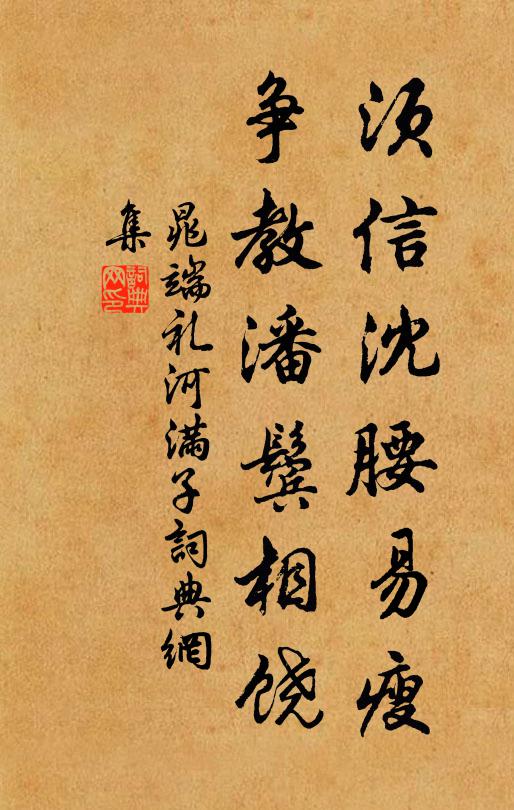 须信沈腰易瘦
争教潘鬓相饶
晁端礼河满子词典網
集
詞典網印